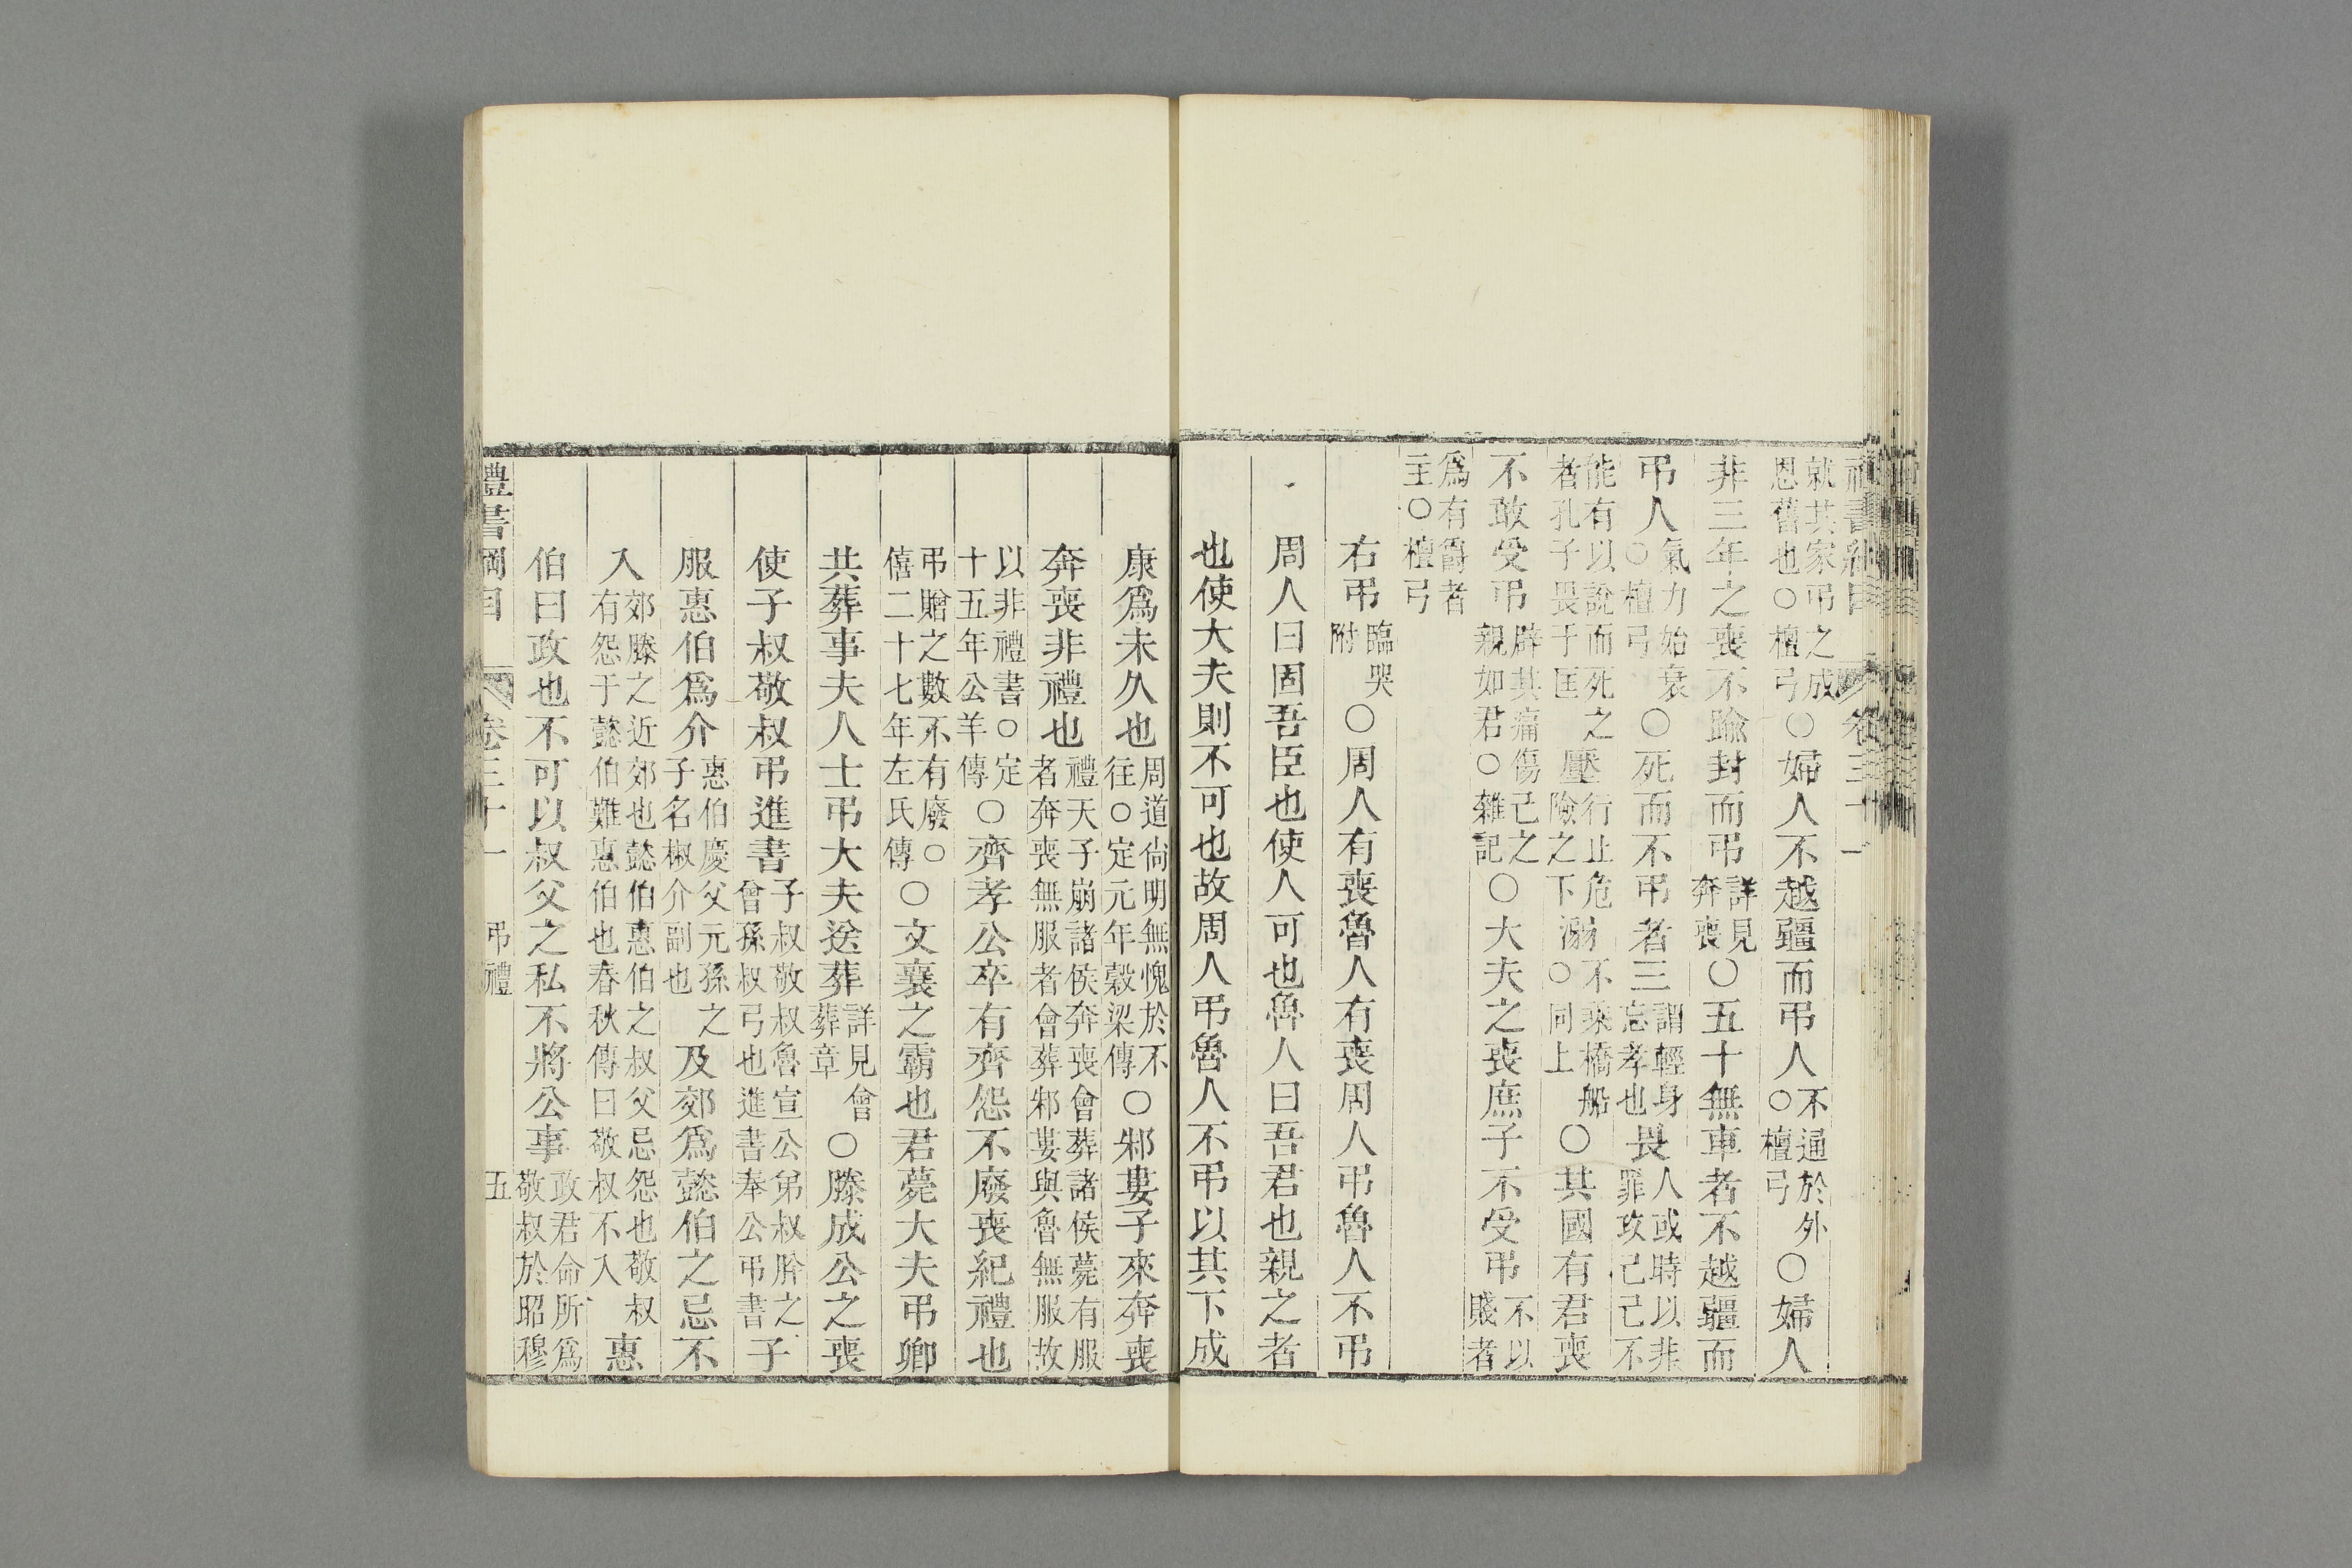 禮書綱目 卷三十一
就其家弔之成恩舊也○檀弓○婦人不越疆而弔人不通於外○檀弓○婦人
非三年之喪不踰封而弔詳見奔喪○五十無車者不越疆而
弔人氣力始衰○檀弓○死而不弔者三謂輕身忘孝也畏人或時以非罪攻己己不
能有以說而死之者孔子畏于匡壓行止危險之下溺不乘橋船○同上○其國有君喪
不敢受弔辟其痛傷己之親如君○雜記○大夫之喪庶子不受弔不以賤者
為有爵者主○檀弓
右弔臨哭附○周人有喪魯人有喪周人弔魯人不弔
周人曰固吾臣也使人可也魯人曰吾君也親之者
也使大夫則不可也故周人弔魯人不弔以其下成
康爲未久也周道尙明無愧於不往○定元年穀梁傳○邾婁子來奔喪
奔喪非禮也禮天子崩諸侯奔喪會葬諸侯薨有服者奔喪無服者會葬邾婁與魯無服故
以非禮書○定十五年公羊傳○齊孝公卒有齊怨不廢喪紀禮也
弔贈之數不有廢○僖二十七年左氏傳○文襄之霸也君薨大夫弔卿
共葬事夫人士弔大夫送葬詳見會葬章○滕成公之喪
使子叔敬叔弔進書子叔敬叔魯宣公弟叔肸之曾孫叔弓也進書奉公弔書子
服惠伯爲介惠伯慶父元孫之子名椒介副也及郊爲懿伯之忌不
入郊滕之近郊也懿伯惠伯之叔父忌怨也敬叔有怨于懿伯難惠伯也春秋傳曰敬叔不入惠
伯曰政也不可以叔父之私不將公事政君命所爲敬叔於昭穆
禮書綱目 卷三十一 弔禮 五